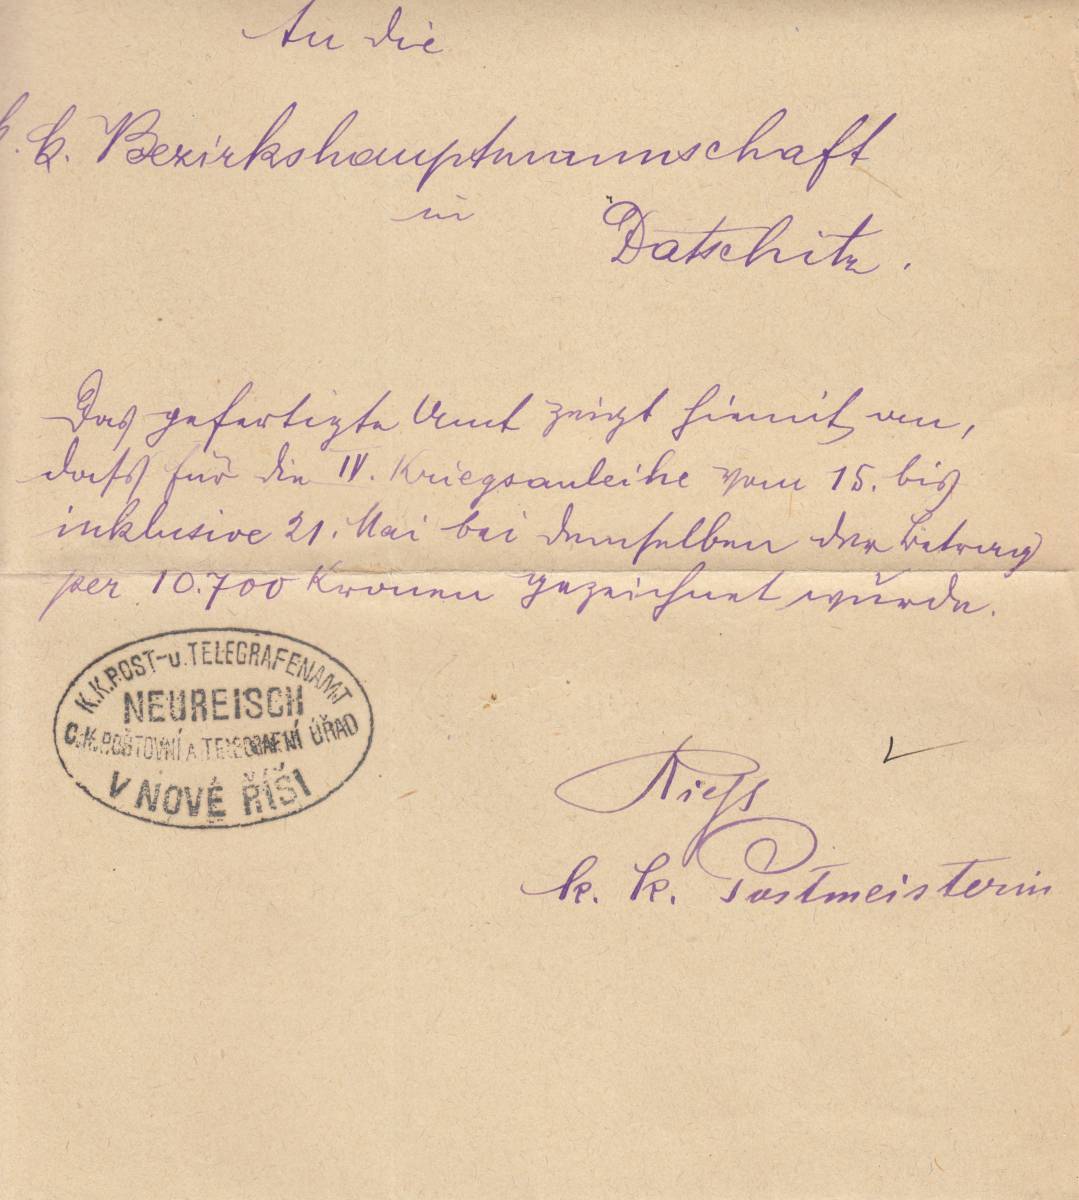 An die
k. k. Bezirkshauptmannschaft
in Datschitz.
Das gefertigte Amt zeigt hiemit an,
dass für die IV. Kriegsanleihe vom 15. bis
inklusive 21. Mai bei demselben der Betrag
per 10.700 Kronen gezeichnet wurde.
K.K.POST-u.TELEGRAFENAMT
NEUREISCH
C.K.POŠTOVNÍ A TELEGRAFNÍ ÚŘAD
V NOVÉ ŘÍŠI
k. k. Postmeisterin